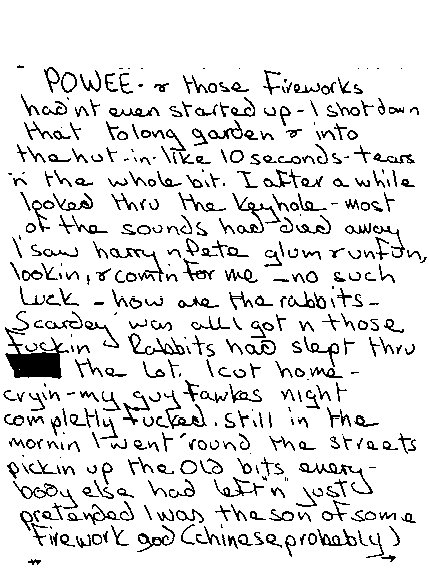 POWEE - & those Fireworks
hadnt even started up - I shot down
that tolong garden & into
the hut - in - like 10 seconds - tears
n the whole bit. I after a while
looked thru the keyhole - most
of the sounds had died away
I saw harry n Pete glum & unfun,
lookin, & comin for me - no such
luck - how are the rabbits -
Scardey was all I got n those
fuckin Rabbits had slept thru
the lot. I cut home -
cryin - my guy fawkes night
completly fucked. still in the
mornin I went 'round the streets
pickin up the old bits every-
body else had left "n" just
pretended I was the son of some
firework god (chinese probably)